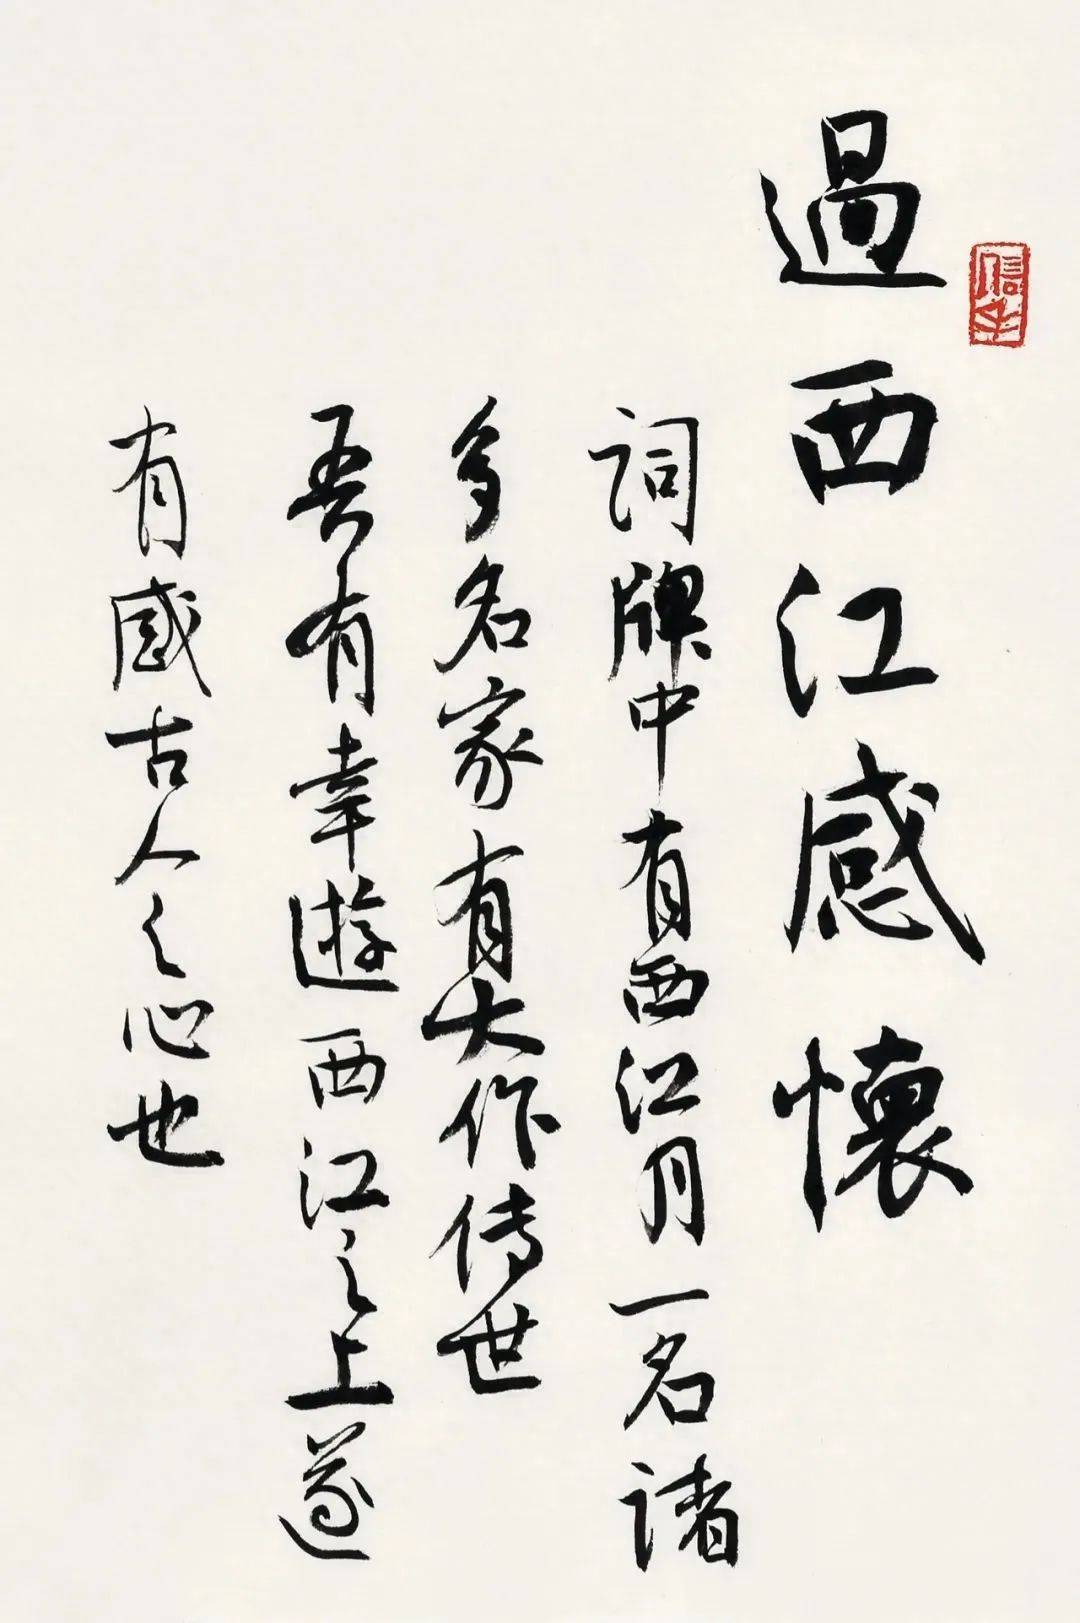 過西江感懷
詞牌中有西江月一名諸
多名家有大作传世
吾有幸遊西江之上遂
有感古人之心也
信手